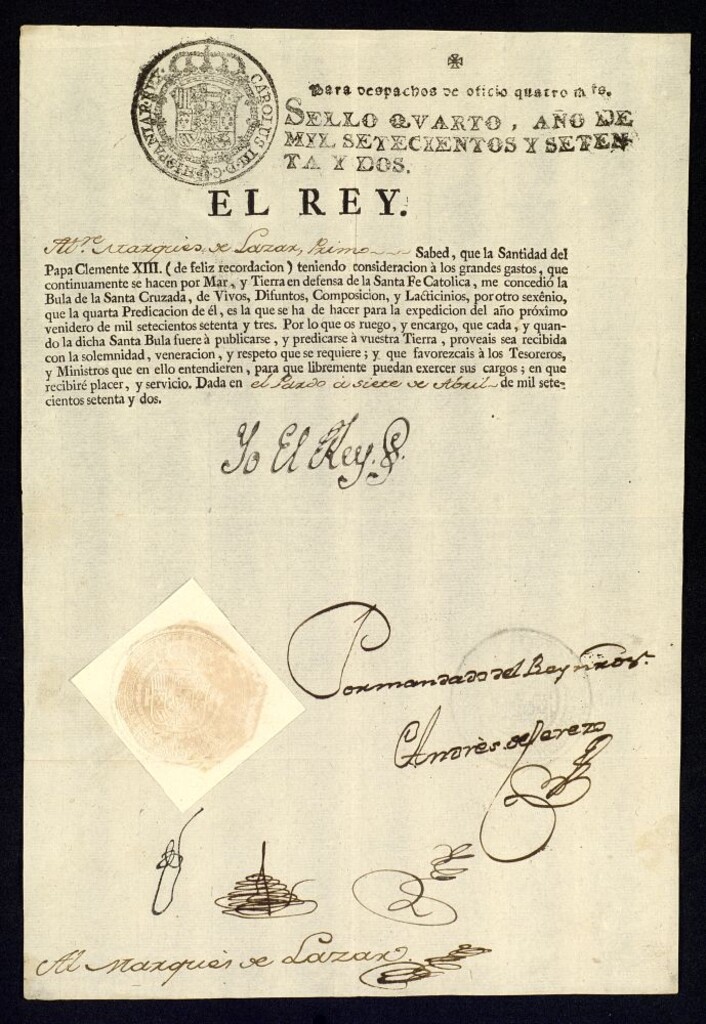 CAROLUS III D. G. HISPANIAR. REX.
Para despachos de oficio quatro mrs.
SELLO QVARTO, AÑO DE
MIL SETECIENTOS Y SETEN-
TA Y DOS.
EL REY.
Marquès de Lazan, Primo Sabed, que la Santidad del
Papa Clemente XIII. (de feliz recordacion) teniendo consideracion à los grandes gastos, que
continuamente se hacen por Mar, y Tierra en defensa de la Santa Fe Catolica, me concedió la
Bula de la Santa Cruzada, de Vivos, Difuntos, Composicion, y Lacticinios, por otro sexênio,
que la quarta Predicacion de él, es la que se ha de hacer para la expedicion del año próximo
venidero de mil setecientos setenta y tres. Por lo que os ruego, y encargo, que cada, y quan-
do la dicha Santa Bula fuere à publicarse, y predicarse à vuestra Tierra, proveais sea recibida
con la solemnidad, veneracion, y respeto que se requiere; y que favorezcais à los Tesoreros,
y Ministros que en ello entendieren, para que libremente puedan exercer sus cargos; en que
recibiré placer, y servicio. Dada en el Pardo à siete de Abril de mil sete-
cientos setenta y dos.
Yo El Rey.
Por mandado del Rey nro. sor.
Andrès de Cerezo
Al Marquès de Lazan.